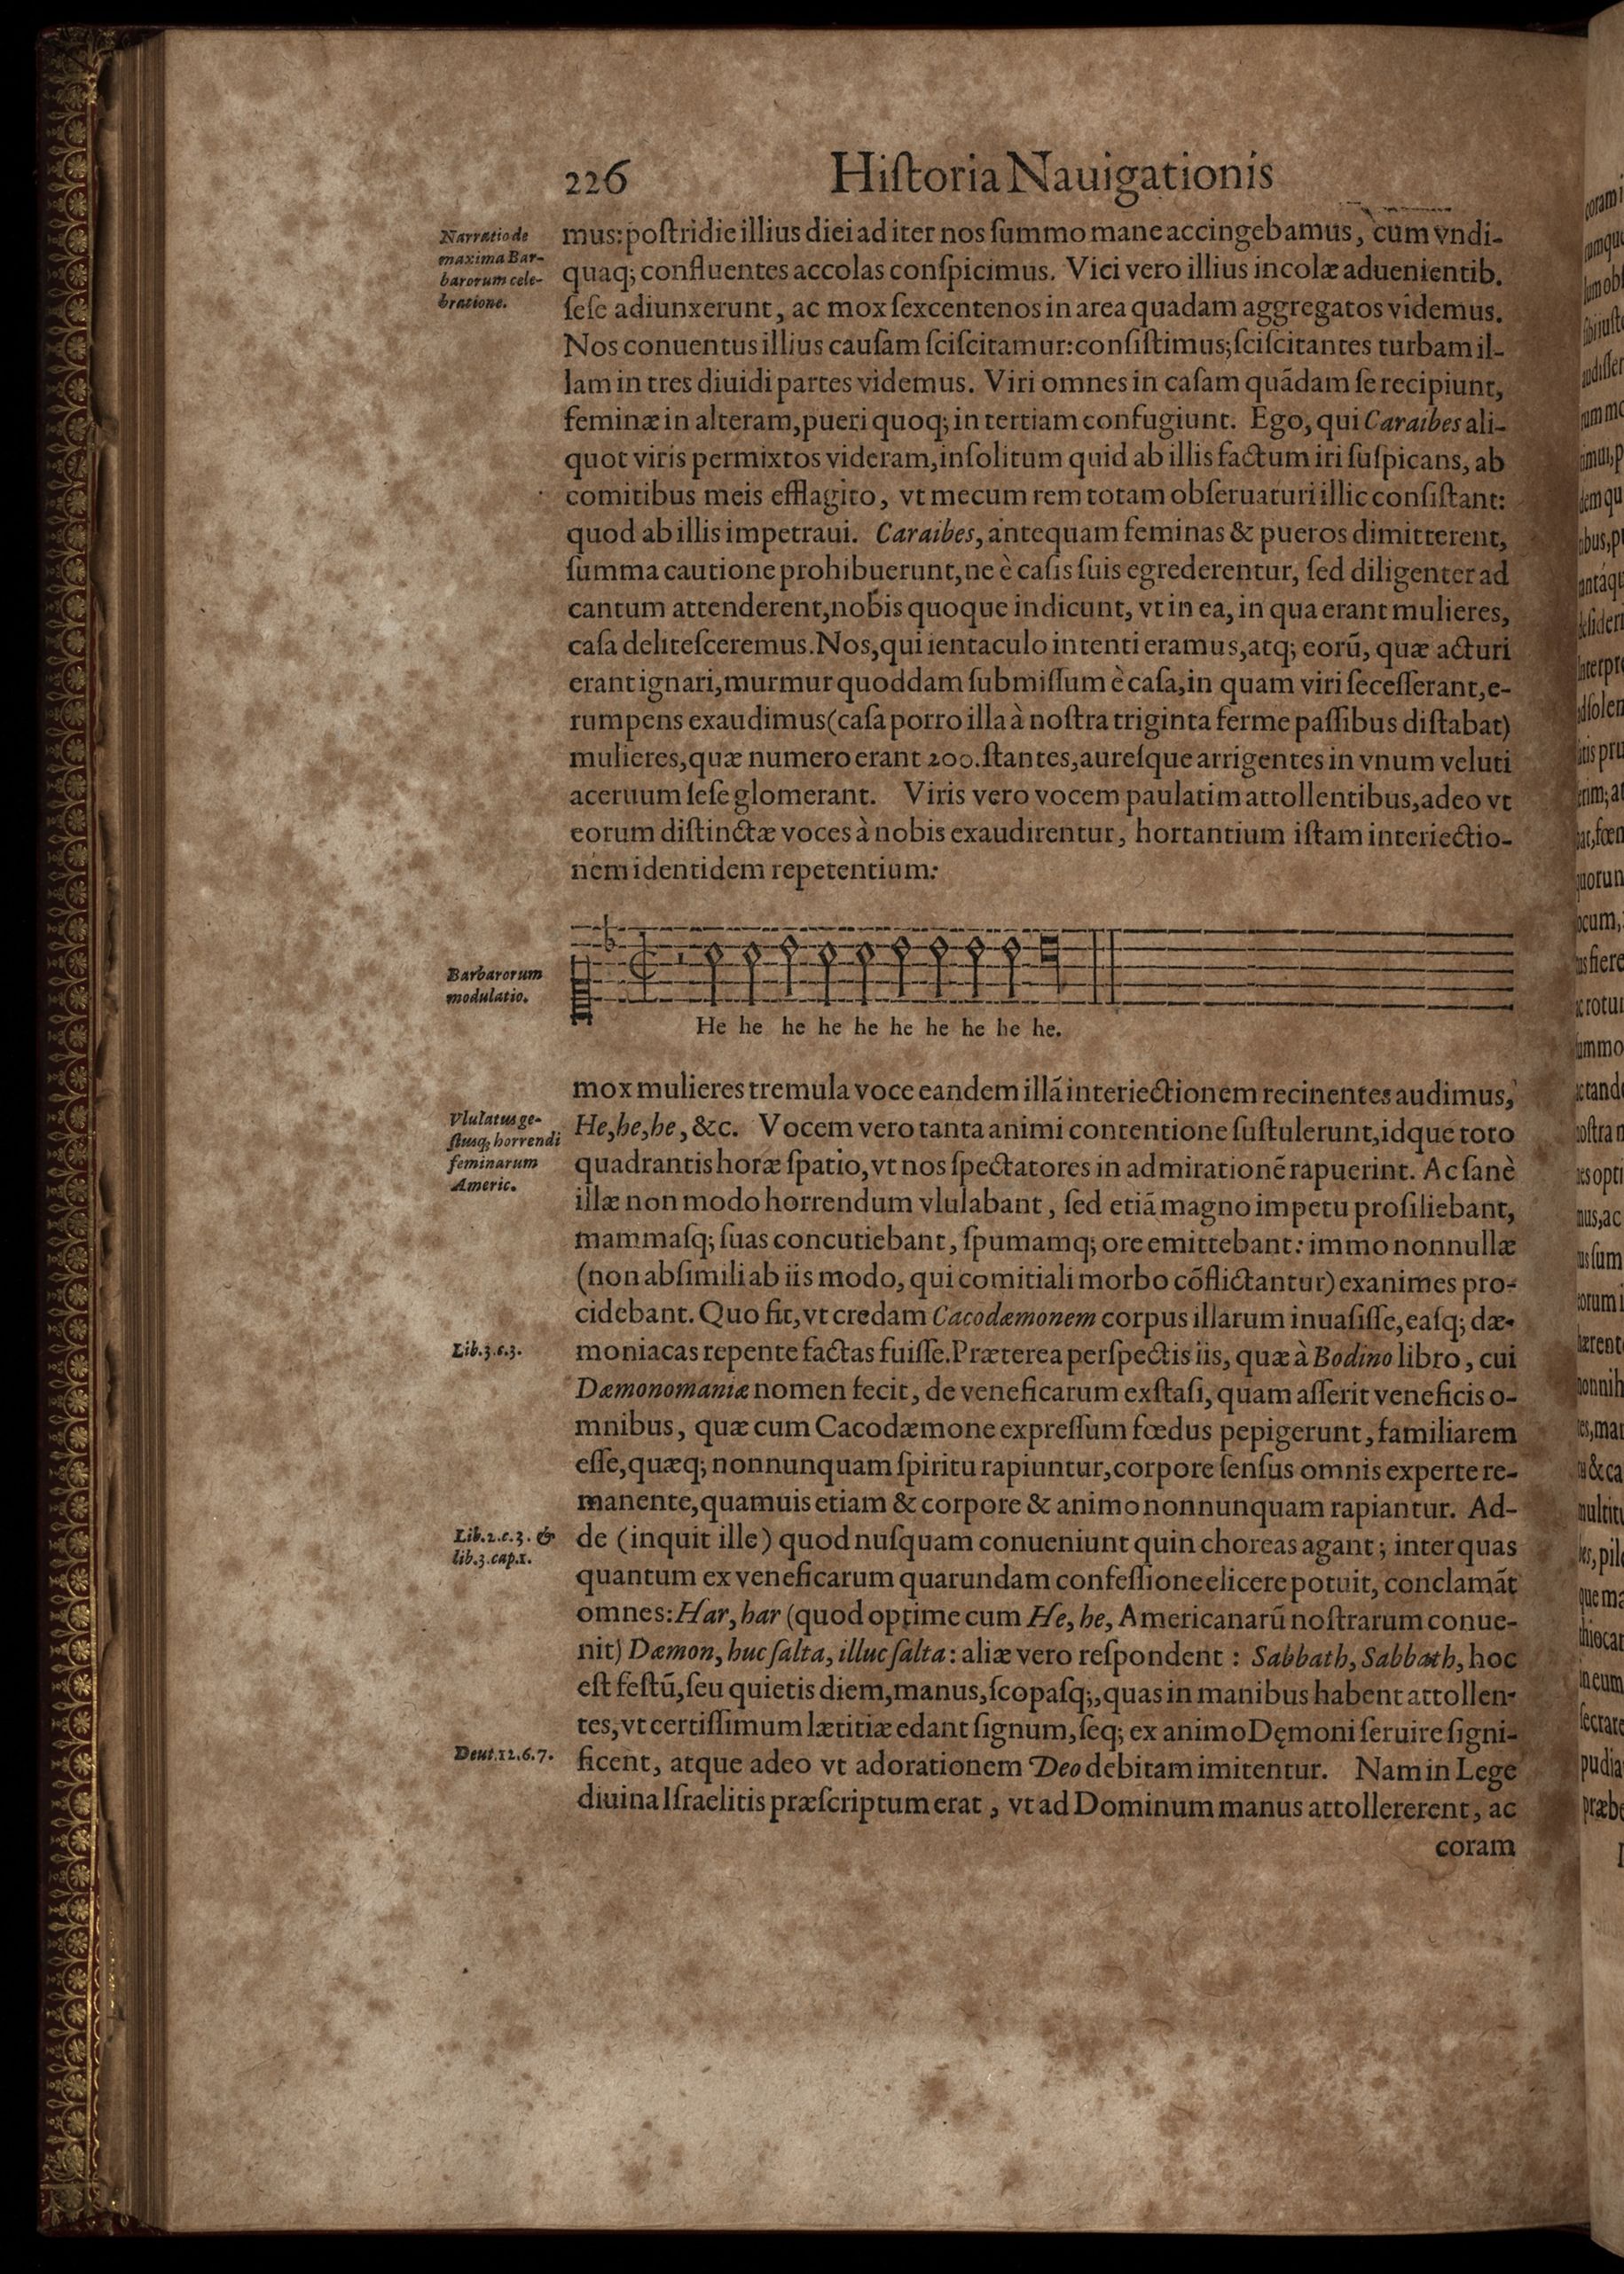 226 Hiſtoria Nauigationis
Narratio de
maxima Bar-
barorum cele-
bratione.
mus: poſtridie illius diei ad iter nos ſummo mane accingebamus, cum vndi-
quaq; confluentes accolas conſpicimus. Vici vero illius incolæ aduenientib.
ſeſe adiunxerunt, ac mox ſexcentenos in area quadam aggregatos videmus.
Nos conuentus illius cauſam ſciſcitamur: conſiſtimus; ſciſcitantes turbam il-
lam in tres diuidi partes videmus. Viri omnes in caſam quãdam ſe recipiunt,
feminæ in alteram, pueri quoq; in tertiam confugiunt. Ego, qui Caraibes ali-
quot viris permixtos videram, inſolitum quid ab illis factum iri ſuſpicans, ab
comitibus meis efflagito, vt mecum rem totam obſeruaturi illic conſiſtant:
quod ab illis impetraui. Caraibes, antequam feminas & pueros dimitterent,
ſumma cautione prohibuerunt, ne è caſis ſuis egrederentur, ſed diligenter ad
cantum attenderent, nobis quoque indicunt, vt in ea, in qua erant mulieres,
caſa deliteſceremus. Nos, qui ientaculo intenti eramus, atq; eorũ, quæ acturi
erant ignari, murmur quoddam ſubmiſſum è caſa, in quam viri ſeceſſerant, e-
rumpens exaudimus (caſa porro illa à noſtra triginta ferme paſſibus diſtabat)
mulieres, quæ numero erant 200. ſtantes, aureſque arrigentes in vnum veluti
aceruum ſeſe glomerant. Viris vero vocem paulatim attollentibus, adeo vt
eorum diſtinctæ voces à nobis exaudirentur, hortantium iſtam interiectio-
nem identidem repetentium:
Barbarorum
modulatio.
He he he he he he he he he he.
mox mulieres tremula voce eandem illã interiectionem recinentes audimus,
Vlulatus ge-
ſtusq; horrendi
feminarum
Americ.
He, he, he, &c. Vocem vero tanta animi contentione ſuſtulerunt, idque toto
quadrantis horæ ſpatio, vt nos ſpectatores in admirationẽ rapuerint. Ac ſanè
illæ non modo horrendum vlulabant, ſed etiã magno impetu proſiliebant,
mammaſq; ſuas concutiebant, ſpumamq; ore emittebant: immo nonnullæ
(non abſimili ab iis modo, qui comitiali morbo cõflictantur) exanimes pro-
cidebant. Quo fit, vt credam Cacodæmonem corpus illarum inuaſiſſe, eaſq; dæ-
Lib. 3. c. 3.
moniacas repente factas fuiſſe. Præterea perſpectis iis, quæ à Bodino libro, cui
Dæmonomaniæ nomen fecit, de veneficarum exſtaſi, quam aſſerit veneficis o-
mnibus, quæ cum Cacodæmone expreſſum fœdus pepigerunt, familiarem
eſſe, quæq; nonnunquam ſpiritu rapiuntur, corpore ſenſus omnis experte re-
manente, quamuis etiam & corpore & animo nonnunquam rapiantur. Ad-
Lib. 2. c. 3. &
lib. 3. cap. 1.
de (inquit ille) quod nuſquam conueniunt quin choreas agant; inter quas
quantum ex veneficarum quarundam confeſſione elicere potuit, conclamãt
omnes: Har, har (quod optime cum He, he, Americanarũ noſtrarum conue-
nit) Dæmon, huc ſalta, illuc ſalta: aliæ vero reſpondent: Sabbath, Sabbath, hoc
eſt feſtũ, ſeu quietis diem, manus, ſcopaſq;, quas in manibus habent attollen-
tes, vt certiſſimum lætitiæ edant ſignum, ſeq; ex animo Dęmoni ſeruire ſigni-
Deut. 12. 6. 7.
ficent, atque adeo vt adorationem Deo debitam imitentur. Nam in Lege
diuina Iſraelitis præſcriptum erat, vt ad Dominum manus attollererent, ac
coram